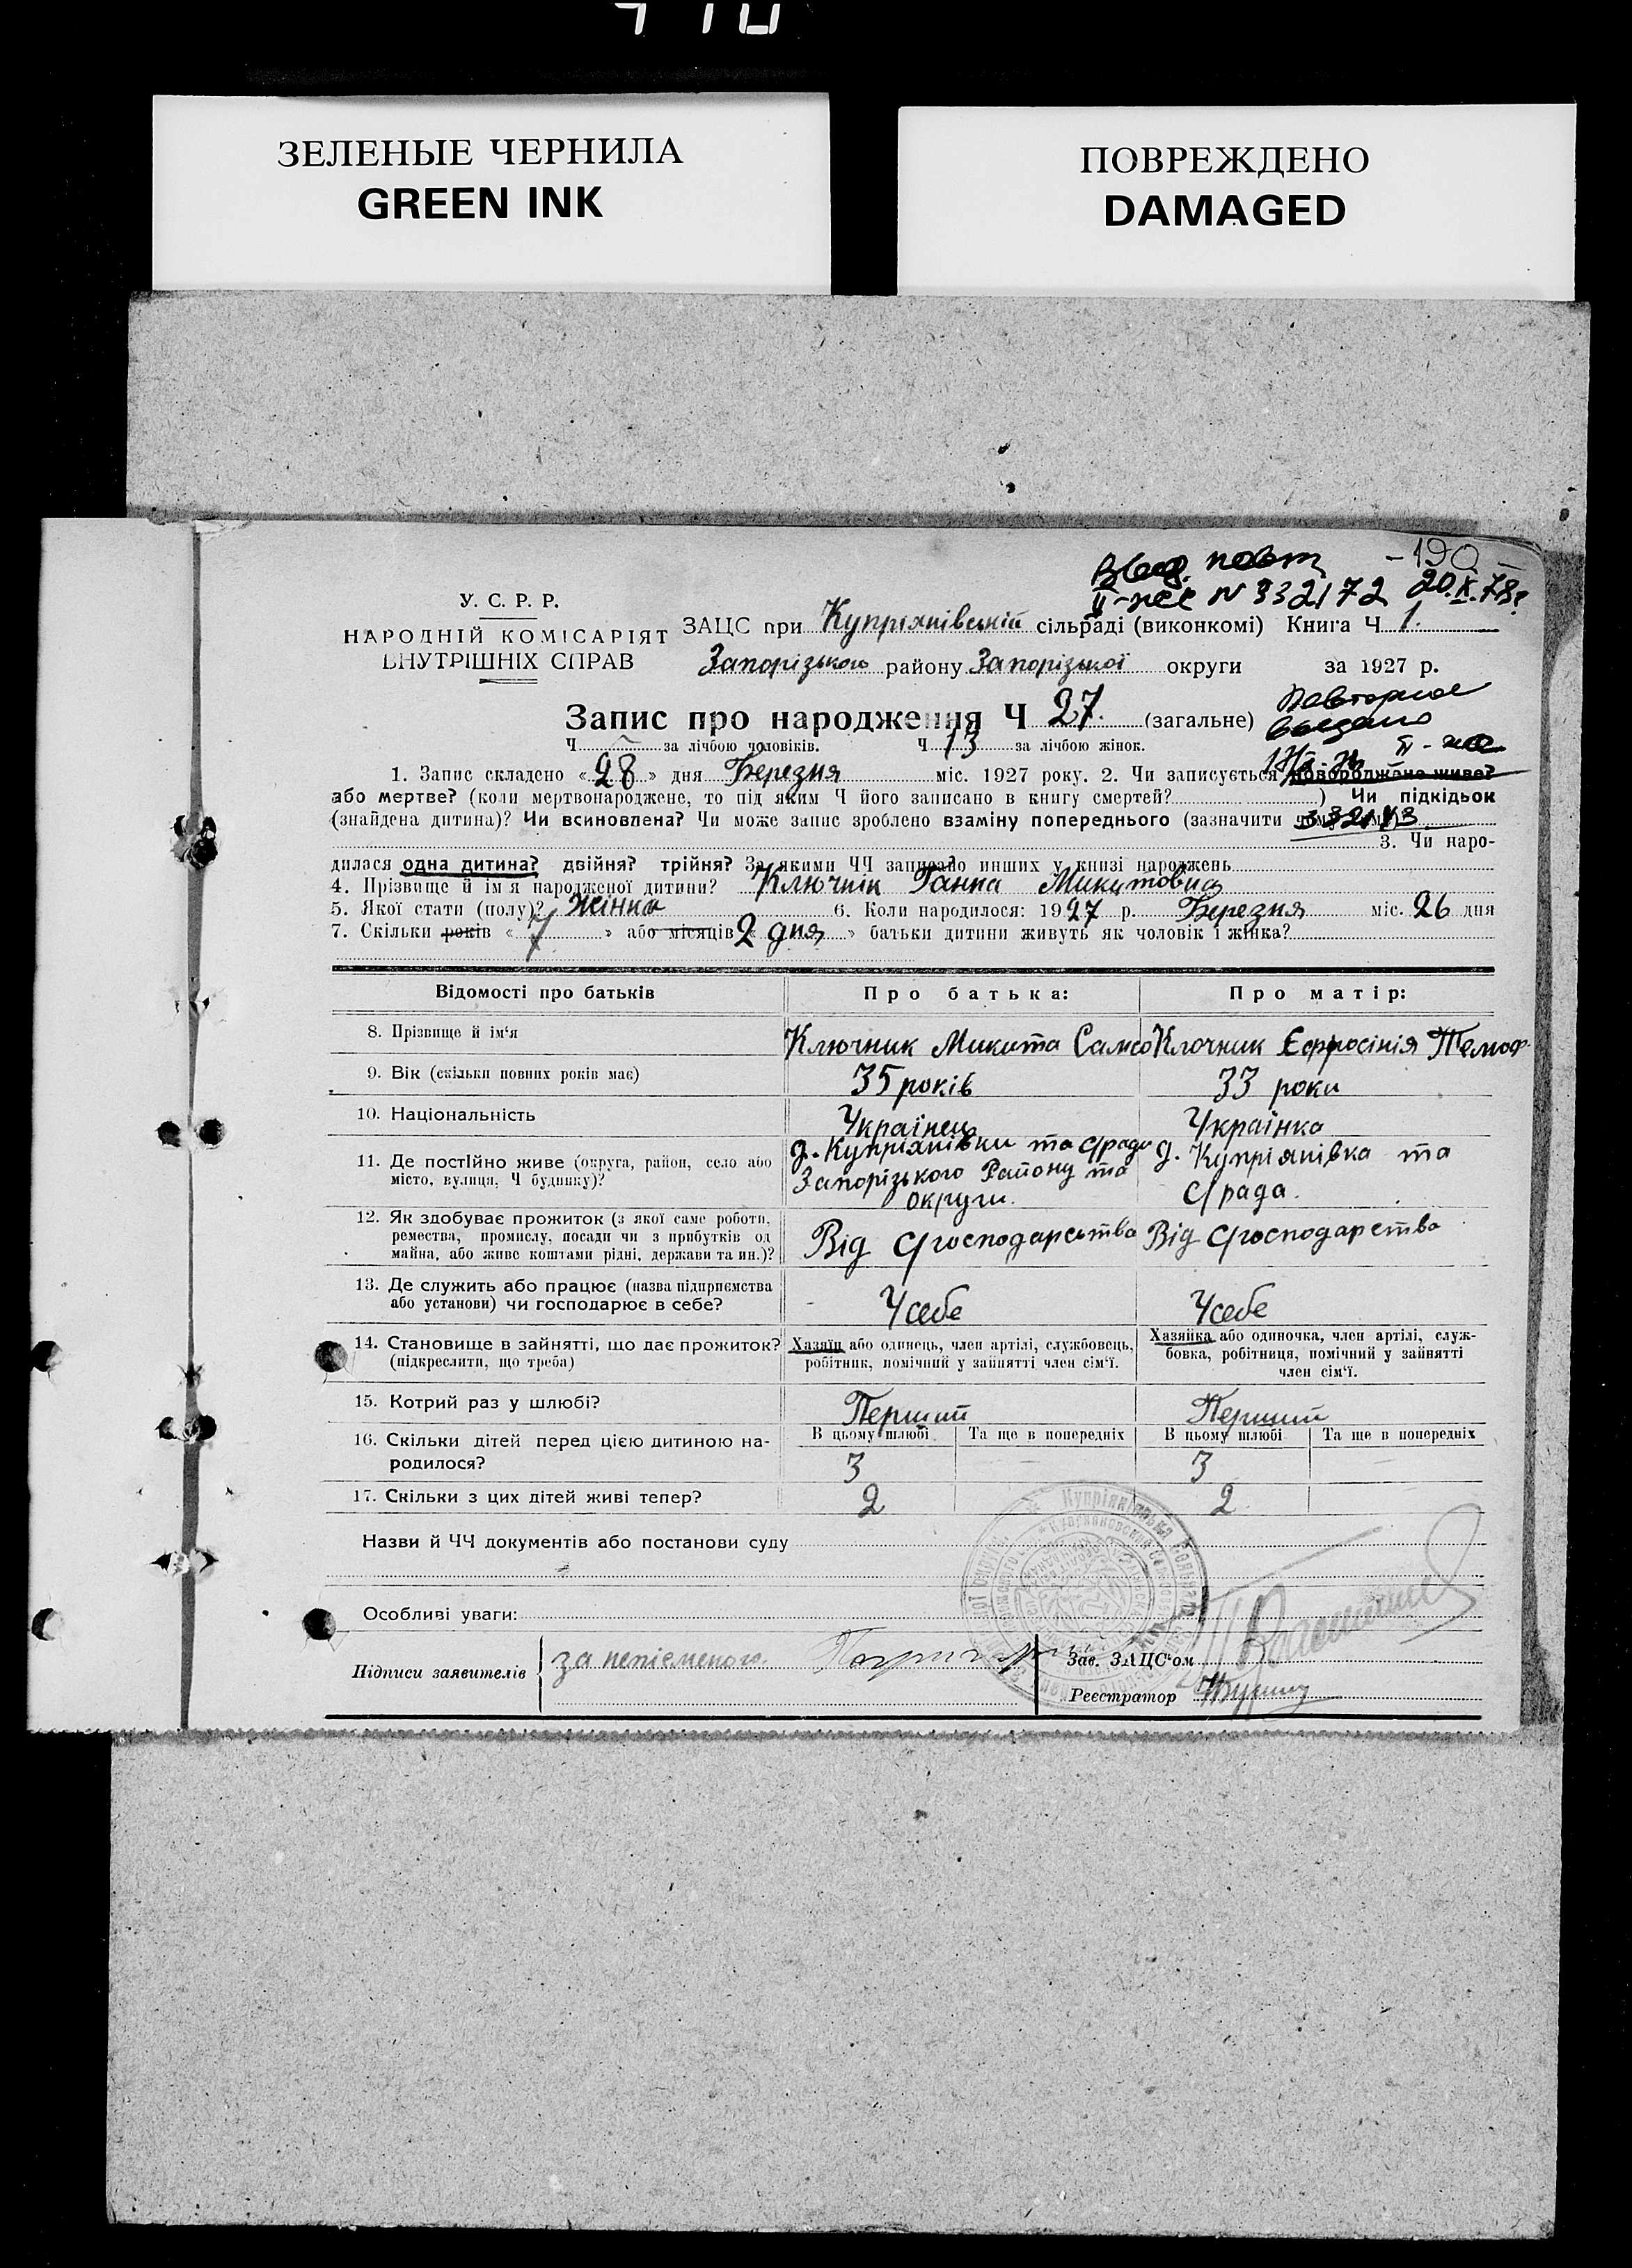 ЗЕЛЕНЫЕ ЧЕРНИЛА
GREEN INK
ПОВРЕЖДЕНО
DAMAGED
Выд. повт. -190-
II-жє N 332172 20.IX.78г
У. С. Р. Р.
НАРОДНІЙ КОМІСАРІЯТ
ВНУТРІШНІХ СПРАВ
ЗАЦС при Купріянівській сільраді (виконкомі) Книга Ч 1.
Запорізького району Запорізької округи за 1927 р.
Запис про народження Ч 27. (загальне)
Повторное
выдано
Ч за лічбою чоловіків. Ч 13 за лічбою жінок.
1. Запис складено « 28 » дня Березня міс. 1927 року. 2. Чи записується новороджене живе?
або мертве? (коли мертвонароджене, то під яким Ч його записано в книгу смертей? ) Чи підкідьок
(знайдена дитина)? Чи всиновлена? Чи може запис зроблено взаміну попереднього (зазначити
3. Чи наро-
дилася одна дитина? двійня? трійня? За якими ЧЧ записано инших у книзі народжень
4. Прізвище й ім'я народженої дитини? Ключнік Ганна Микитовна
5. Якої стати (полу)? Жінка 6. Коли народилося: 1927 р. Березня міс. 26 дня
7. Скільки років « 7 » або місяців « 2 дня » батьки дитини живуть як чоловік і жінка?
Відомості про батьків Про батька: Про матір:
8. Прізвище й ім'я Ключник Микита Само Ключник Єфросінія Темоф.
9. Вік (скільки повних років має) 35 років 33 роки
10. Національність Українець Українка
11. Де постійно живе (округа, район, село або місто, вулиця, Ч будинку)?
д. Купріянівки та с/ради
Запорізького Району та
округи.
д. Купріянівка та
с/рада.
12. Як здобуває прожиток (з якої саме роботи,
ремества, промислу, посади чи з прибутків од
майна, або живе коштами рідні, держави та ин.)?
Від с/господарства Від с/господарства
13. Де служить або працює (назва підприємства
або установи) чи господарює в себе?
У себе У себе
14. Становище в зайнятті, що дає прожиток?
(підкреслити, що треба)
Хазяїн або одинець, член артілі, службовець,
робітник, помічний у зайнятті член сім'ї.
Хазяйка або одиночка, член артілі, служ-
бовка, робітниця, помічний у зайнятті
член сім'ї.
15. Котрий раз у шлюбі? Перший Перший
16. Скільки дітей перед цією дитиною на-
родилося?
В цьому шлюбі Та ще в попередніх В цьому шлюбі Та ще в попередніх
3 3
17. Скільки з цих дітей живі тепер? 2 2
Назви й ЧЧ документів або постанови суду
Особливі уваги:
Підписи заявителів за неписменого
Зав. ЗАЦС'ом
Реєстратор